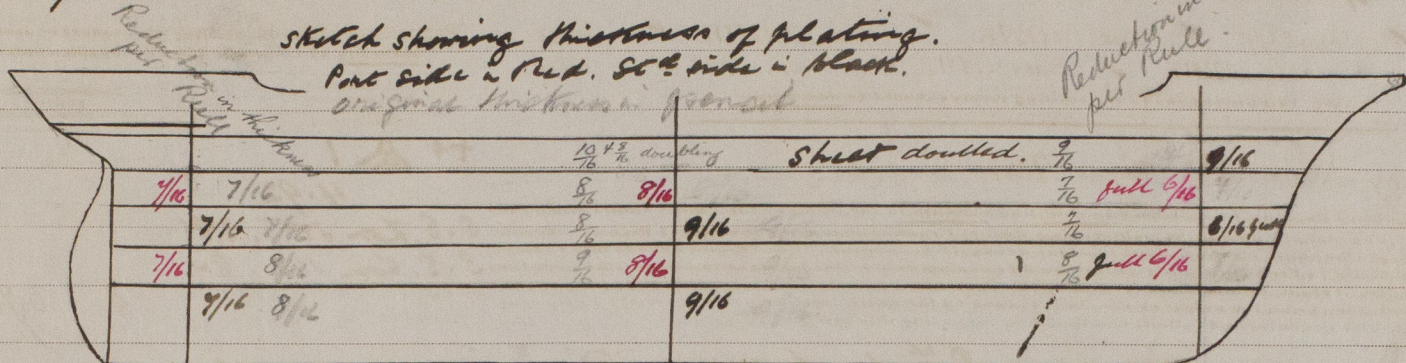 sketch showing thickness of plating.
Port side in Red. Stbd side in black.
original thickness in pencil
Reduction in thickness
per Rule
Reduction in
per Rule.
10/16 + 8/16 doubling Sheet doubled. 9/16 9/16
7/16 7/16 8/16 8/16 7/16 full 6/16
7/16 7/16 8/16 9/16 7/16 8/16 full
7/16 8/16 9/16 8/16 8/16 full 6/16
7/16 8/16 9/16